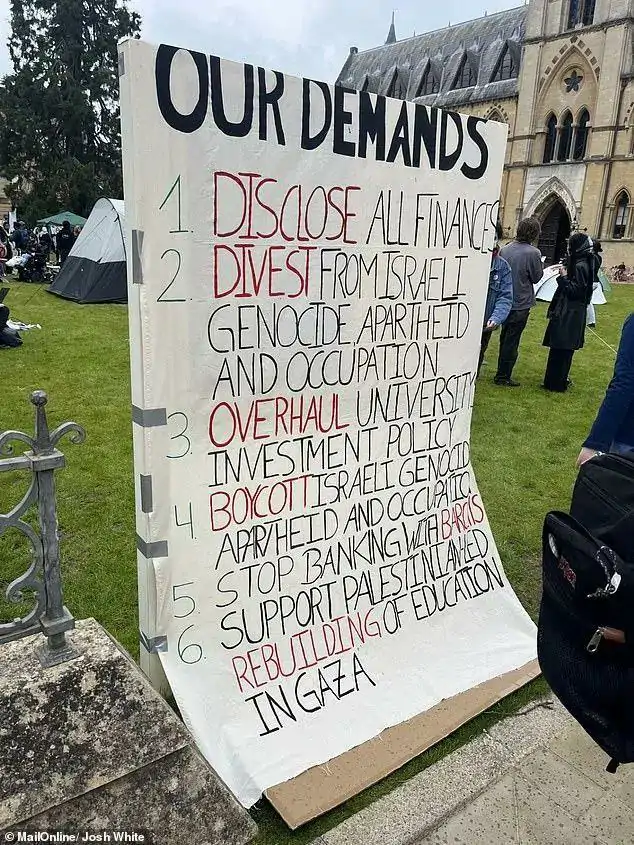 OUR DEMANDS
1. DISCLOSE ALL FINANCES
2. DIVEST FROM ISRAELI
GENOCIDE, APARTHEID
AND OCCUPATION
3. OVERHAUL UNIVERSITY
INVESTMENT POLICY
4. BOYCOTT ISRAELI GENOCID
APARTHEID AND OCCUPATIO
5. STOP BANKING WITH BARCLYS
6. SUPPORT PALESTINIAN-LED
REBUILDING OF EDUCATION
IN GAZA
© MailOnline/ Josh White